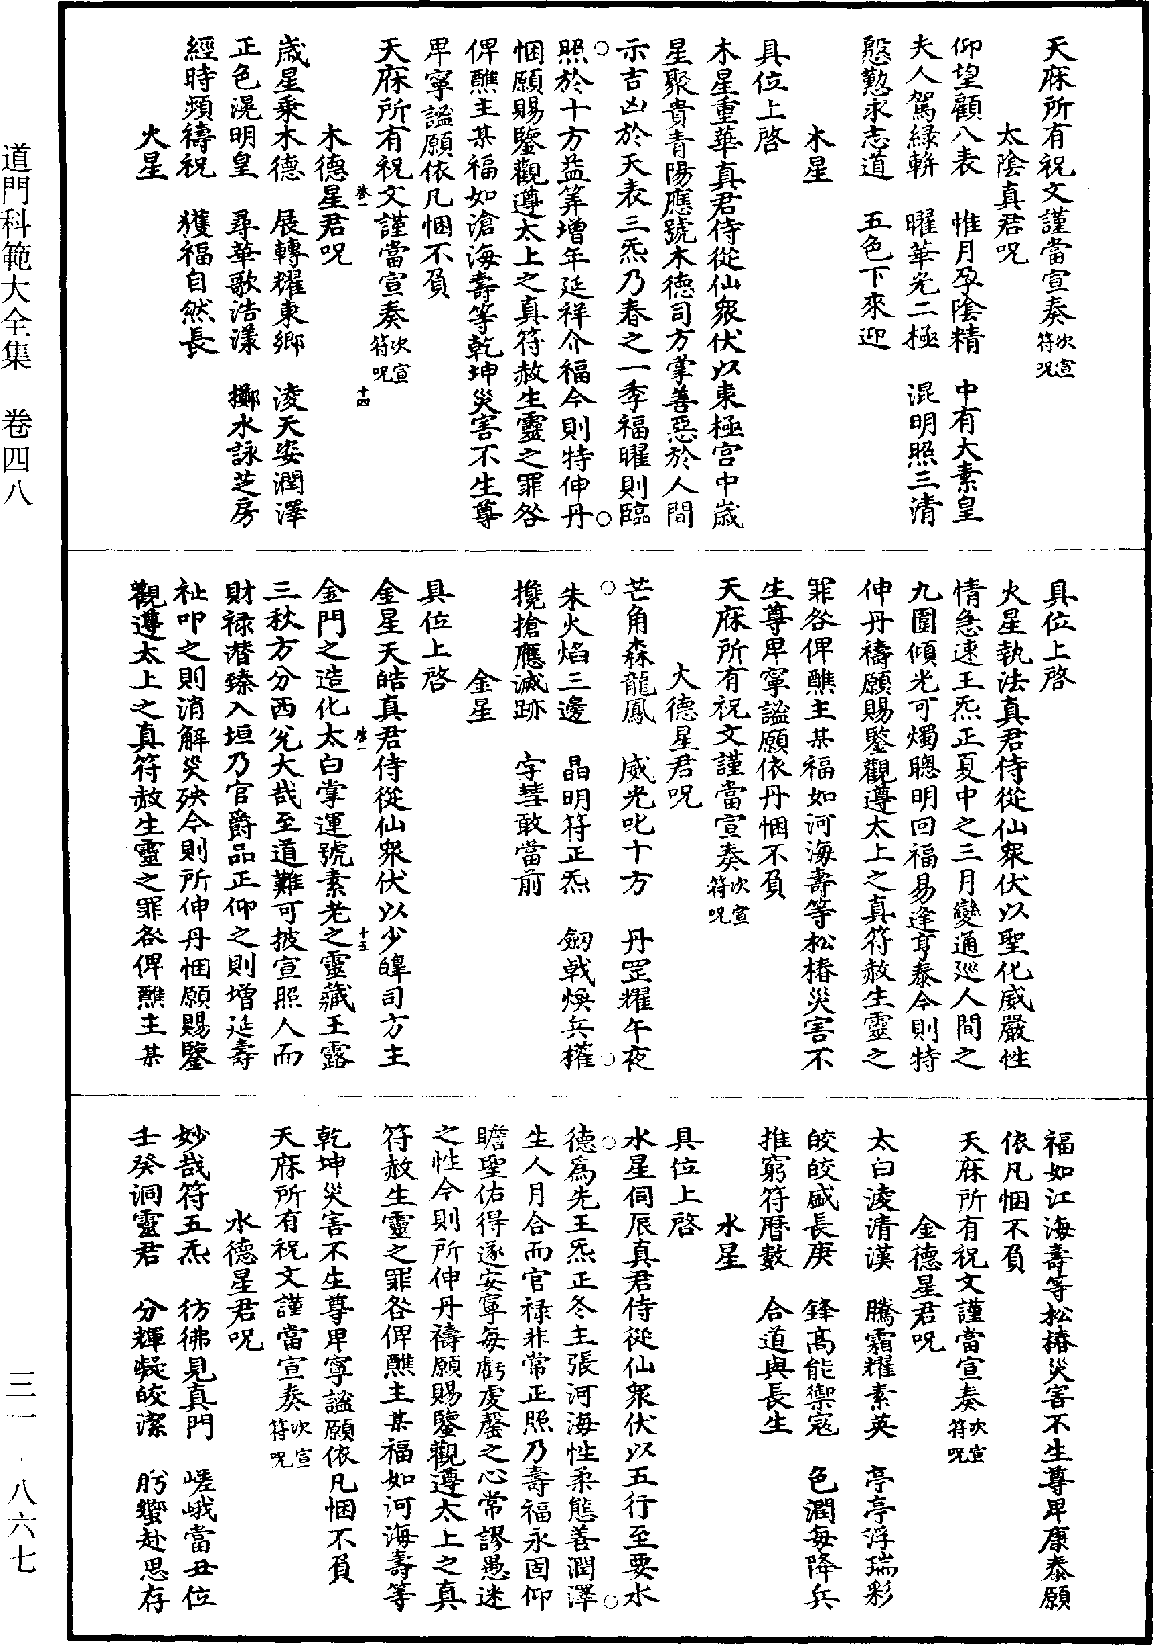 天庥所有祝文謹當宣奏次宣符呪
太陰真君呪
仰望顧八表　惟月孕陰精　中有大素皇
夫人駕綠軿　曜華光二極　混明照三清
慇懃求志道　五色下來迎
木星
具位上啓
木星重華真君侍從仙衆伏以東極宮中歲
星聚貴青陽應號木德司方掌善惡於人間
示吉凶於天表三炁乃春之一季福曜則臨
照於十方益筭增年延祥介福今則特伸丹
悃願賜鑒觀遵太上之真符赦生靈之罪咎
俾醮主某福如滄海壽等乾坤災害不生尊
卑寧謐願依凡悃不負
天庥所有祝文謹當宣奏次宣符呪
卷一　十四
木德星君呪
歲星乘木德　展轉耀東鄉　淩天姿潤澤
正色滉明皇　尋華歌浩漾　擲水詠芝房
經時頻禱祝　獲福自然長
火星
具位上啓
火星執法真君侍從仙衆伏以聖化威嚴性
情急速王炁正夏中之三月變通巡人間之
九圍傾光可燭聰明回福易逢亨泰今則特
伸丹禱願賜鑒觀遵太上之真符赦生靈之
罪咎俾醮主某福如河海壽等松椿災害不
生尊卑寧謐願依丹悃不負
天庥所有祝文謹當宣奏次宣符呪
大德星君呪
芒角森龍鳳　威光叱十方　丹罡耀午夜
朱火焰三邊　晶明符正炁　劒戟煥兵權
攙搶應滅跡　孛彗敢當前
金星
具位上啓
金星天皓真君侍從仙衆伏以少皥司方主
卷一　十五
金門之造化太白掌運號素老之靈藏王露
三秋方分西兌大哉至道難可披宣照人而
財祿潛臻入垣乃官爵品正仰之則增延壽
祉叩之則消解災殃今則所伸丹悃願賜鑒
觀遵太上之真符赦生靈之罪咎俾醮主某
福如江海壽等松椿災害不生尊卑康泰願
依凡悃不負
天庥所有祝文謹當宣奏次宣符呪
金德星君呪
太白淩清漢　騰霜耀素英　亭亭浮瑞彩
皎皎盛長庚　鋒高能禦寇　色潤每降兵
推窮符曆數　合道與長生
水星
具位上啓
水星伺辰真君侍從仙衆伏以五行至要水
德為先王炁正冬主張河海性柔態善潤澤
生人月合而官祿非常正照乃壽福永固仰
瞻聖佑得遂安寧每虧虔罄之心常謬愚迷
之性今則所伸丹禱願賜鑒觀遵太上之真
符赦生靈之罪咎俾醮主某福如河海壽等
乾坤災害不生尊卑寧謐願依凡悃不負
天庥所有祝文謹當宣奏次宣符呪
水德星君呪
妙哉符五炁　彷彿見真門　嵯峨當丑位
壬癸洞靈君　分輝凝皎潔　肹蠁赴思存
道門科範大全集　卷四八
三一・八六七